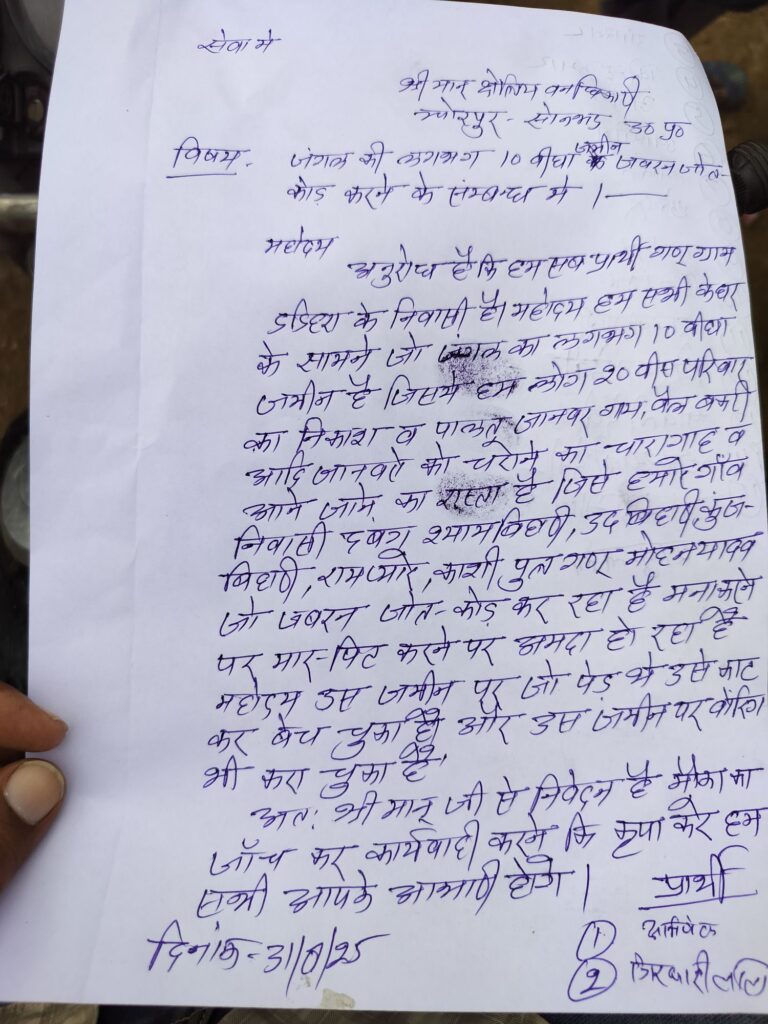 सेवा मे
श्री मान् क्षेत्रिय वनाधिकारी
म्योरपुर - सोनभद्र उ० प्र०
विषय - जंगल की लगभग 10 वीघा जमीन के जबरन जोत-
कोड़ करने के संम्बन्ध मे ।
महोदय
अनुरोध है कि हम सब प्रार्थी गण ग्राम
डडिहरा के निवासी है। महोदय हम सभी के घर
के सामने जो जंगल का लगभग 10 वीघा
जमीन है जिसमे हम लोग 20 वीस परिवार
का निकाश व पालतू जानवर गाय, वैल बकरी
आदि जानवरो को चराने का चारागाह व
आने जाने का रास्ता है जिसे हमारे गाँव
निवासी दबंग श्यामबिहारी, उदबिहारी, कुंज-
बिहारी, रामप्यारे, काशी पुत्र गण मोहन यादव
जो जबरन जोत-कोड़ कर रहा है मना करने
पर मार-पिट करने पर अमदा हो रहा है
महोदय उस जमीन पर जो पेड़ थे उसे काट
कर बेच चुका है और उस जमीन पर वोरिंग
भी करा चुका है।
अतः श्री मान् जी से निवेदन है मौका का
जाँच कर कार्यवाही करने कि कृपा करे हम
सभी आपके आभारी होगे ।
प्रार्थी
दिनांक - 31/8/25
①
② गिरधारी लाल